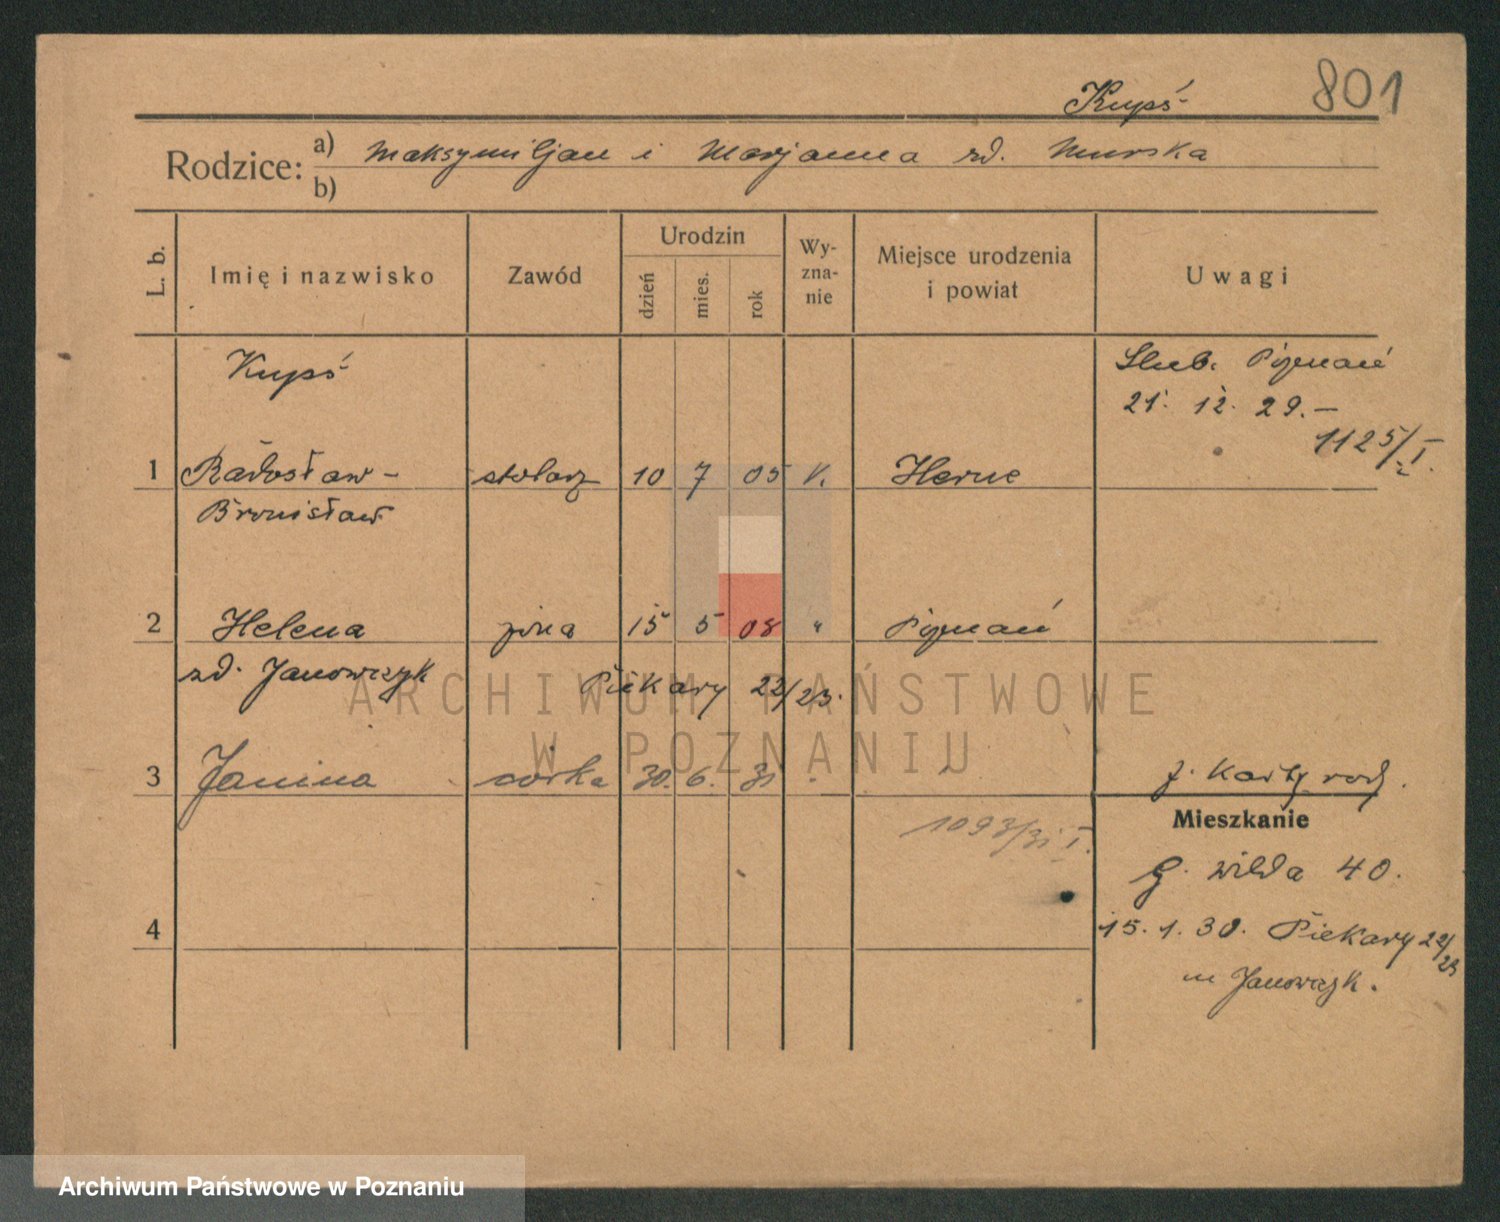 Kupś
801
Rodzice:
a) Maksymiljan i Marjanna zd. Murska
b)
L. b.
Imię i nazwisko
Zawód
Urodzin
dzień
mies.
rok
Wy-
zna-
nie
Miejsce urodzenia
i powiat
Uwagi
Kupś
Ślub. Poznań
21. 12. 29. –
1125/I.
1 Radosław - stolarz 10 7 05 k. Herne
Bronisław
2 Helena żona 15 5 08 " Poznań
zd. Janowczyk Piekary 22/23.
3 Janina córka 30. 6. 31 " "
z. Karty rodz.
1093/31 I.
Mieszkanie
G. Wilda 40.
4
15. 1. 30. Piekary 22/23
m Janowczyk.
ARCHIWUM PAŃSTWOWE
W POZNANIU
Archiwum Państwowe w Poznaniu